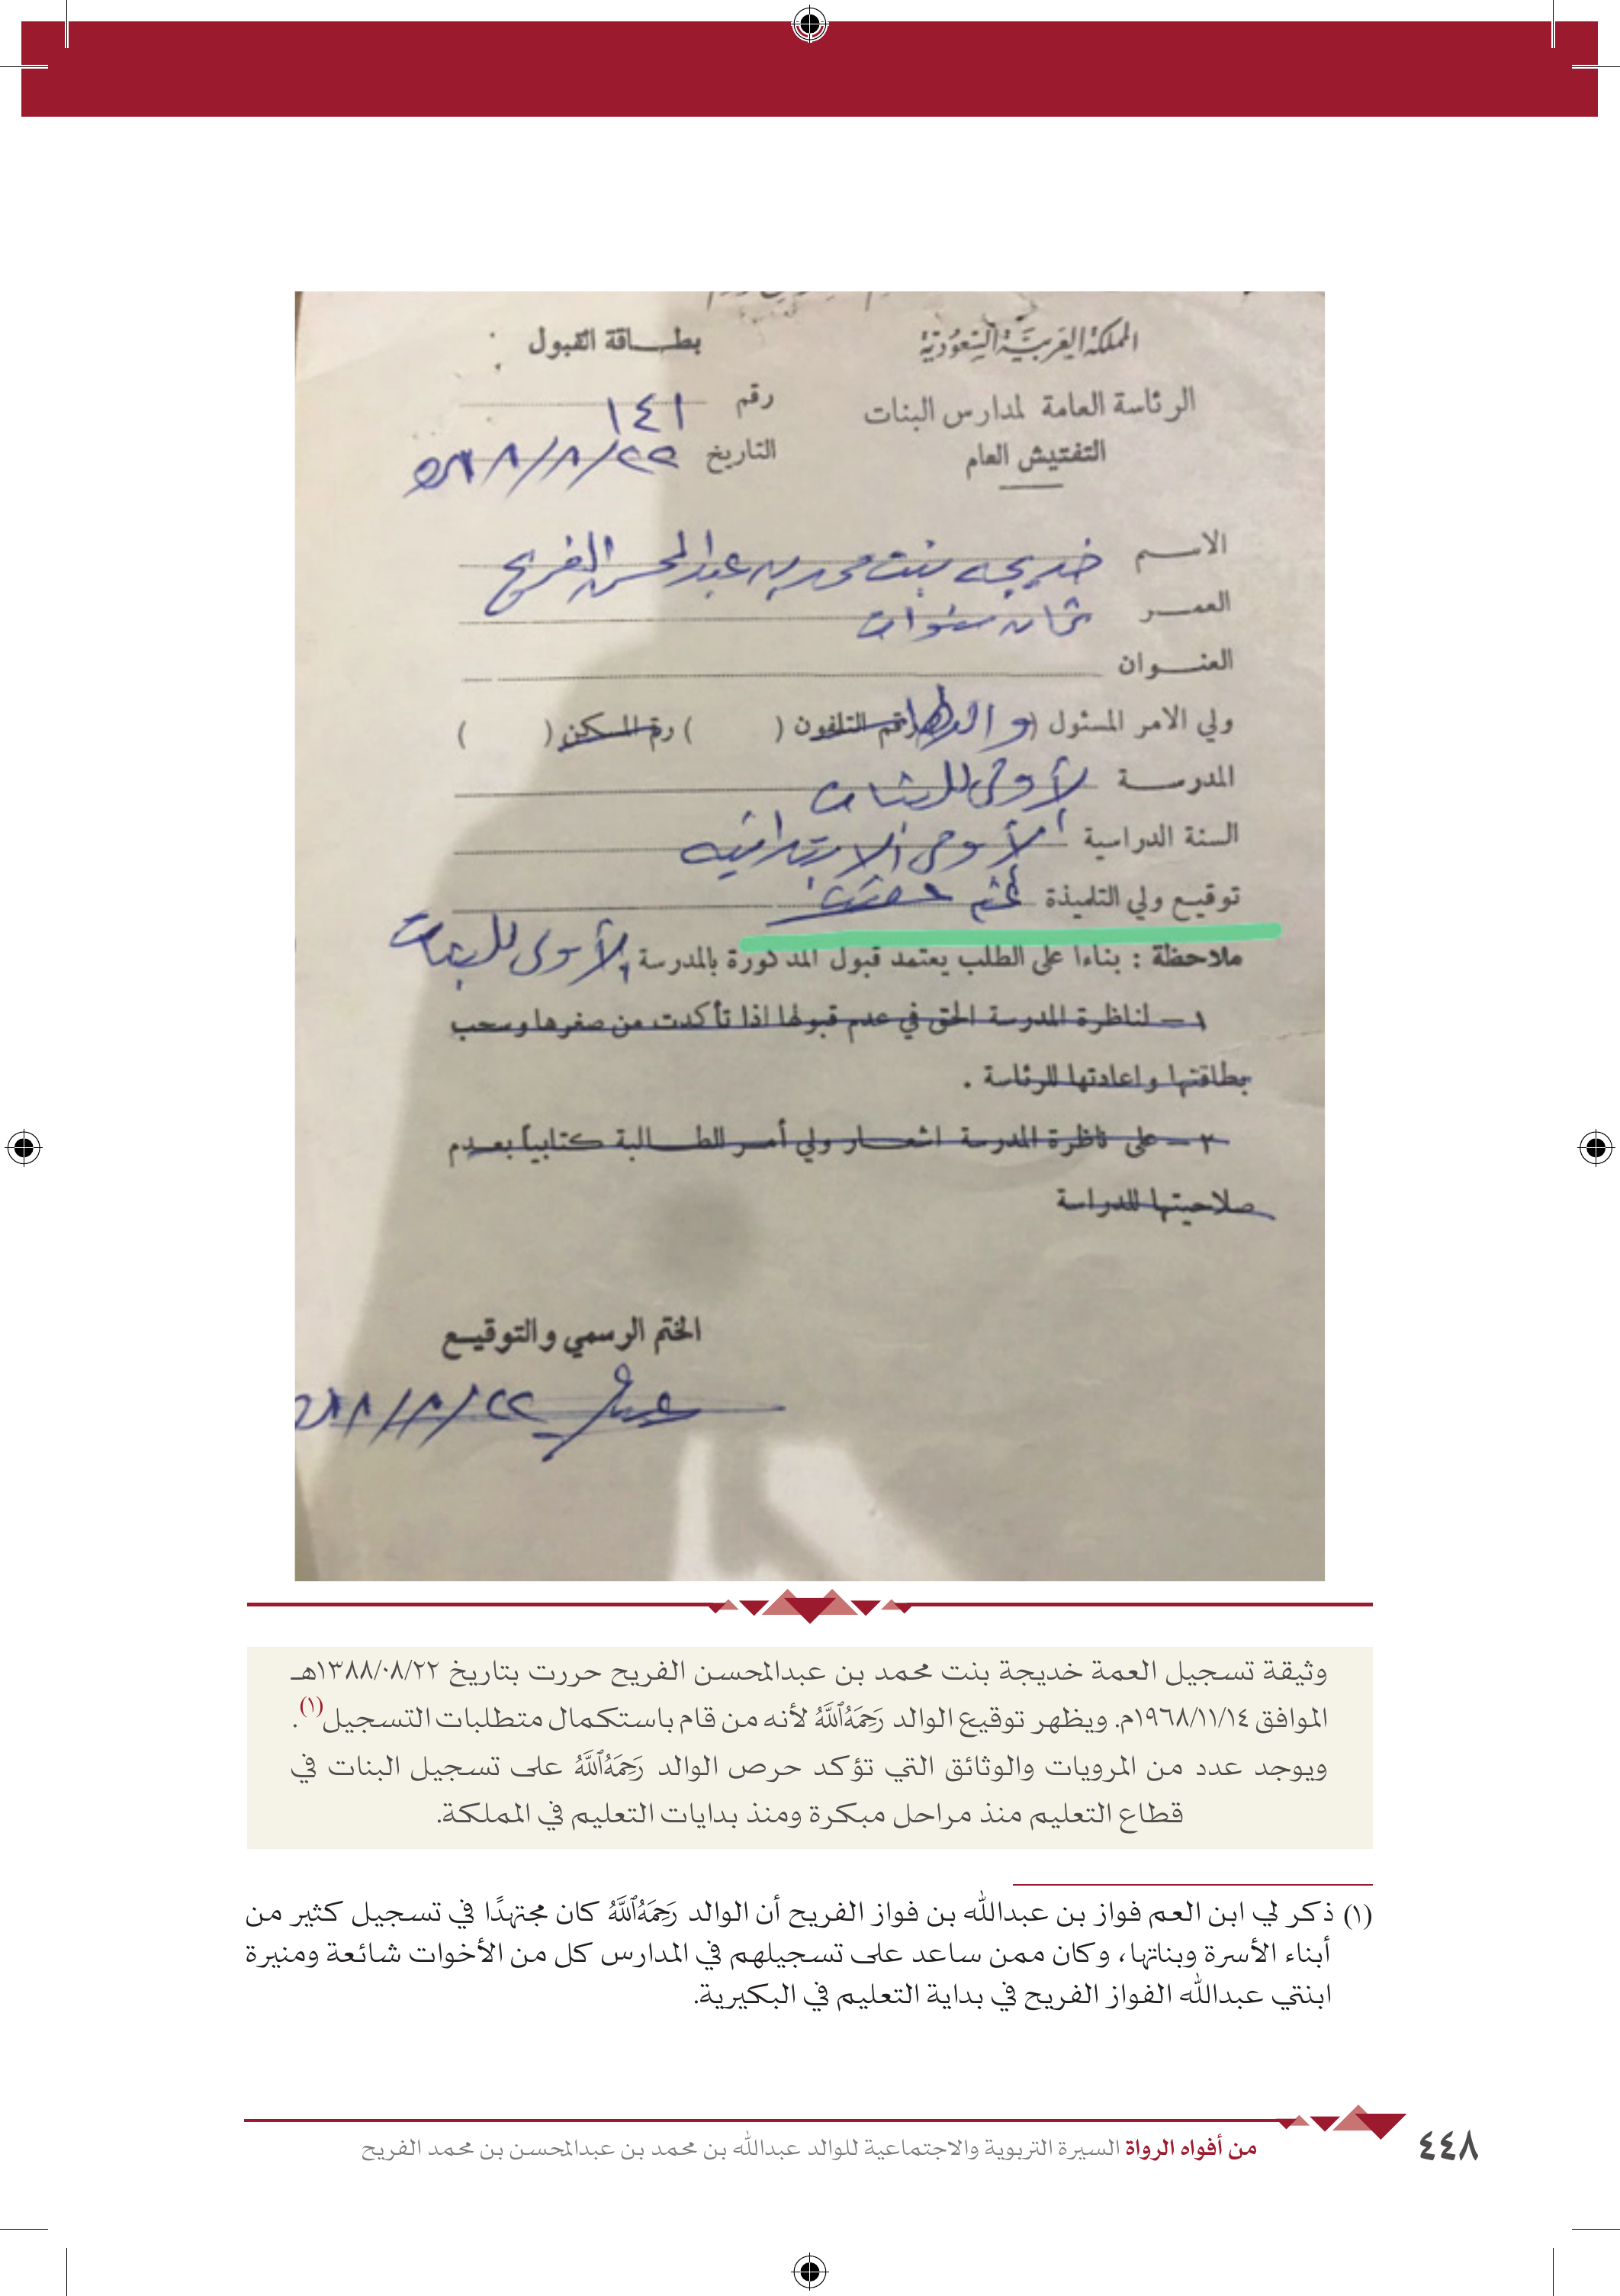 المملكة العربية السعودية
الرئاسة العامة لمدارس البنات
التفتيش العام
بطاقة القبول
رقم ١٤١
التاريخ ٢٢/٨/٨٨
الاسم خديجه بنت محمد بن عبدالمحسن الفريح
العمر ثمان سنوات
العنوان
ولي الامر المسئول (والدها رقم التلفون ( ) رقم المسكن ( )
المدرسة الأولى للبنات
السنة الدراسية الأولى الابتدائيه
توقيع ولي التلميذة
ملاحظة : بناءا على الطلب يعتمد قبول المذكورة بالمدرسة الأولى للبنات
١ – لناظرة المدرسة الحق في عدم قبولها اذا تأكدت من صغرها وسحب
بطاقتها واعادتها للرئاسة .
٢ – على ناظرة المدرسة اشعار ولي أمر الطالبة كتابياً بعدم
صلاحيتها للدراسة
الختم الرسمي والتوقيع
وثيقة تسجيل العمة خديجة بنت محمد بن عبدالمحسن الفريح حررت بتاريخ ١٣٨٨/٠٨/٢٢هـ
الموافق ١٩٦٨/١١/١٤م. ويظهر توقيع الوالد رَحِمَهُ ٱللَّهُ لأنه من قام باستكمال متطلبات التسجيل(١).
ويوجد عدد من المرويات والوثائق التي تؤكد حرص الوالد رَحِمَهُ ٱللَّهُ على تسجيل البنات في
قطاع التعليم منذ مراحل مبكرة ومنذ بدايات التعليم في المملكة.
(١) ذكر لي ابن العم فواز بن عبدالله بن فواز الفريح أن الوالد رَحِمَهُ ٱللَّهُ كان مجتهدًا في تسجيل كثير من
أبناء الأسرة وبناتها، وكان ممن ساعد على تسجيلهم في المدارس كل من الأخوات شائعة ومنيرة
ابنتي عبدالله الفواز الفريح في بداية التعليم في البكيرية.
من أفواه الرواة السيرة التربوية والاجتماعية للوالد عبدالله بن محمد بن عبدالمحسن بن محمد الفريح
٤٤٨